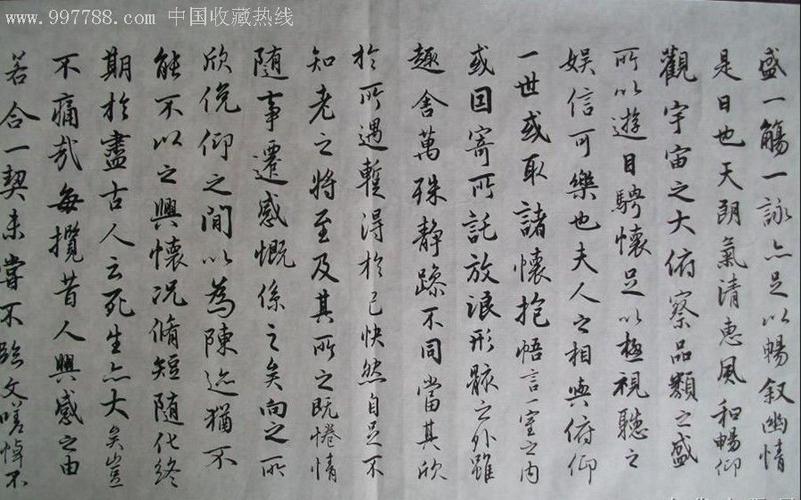 www.997788.com 中国收藏热线
盛一觴一詠亦足以暢叙幽情
是日也天朗氣清惠風和暢仰
觀宇宙之大俯察品類之盛
所以遊目騁懷足以極視聽之
娱信可樂也夫人之相與俯仰
一世或取諸懷抱悟言一室之内
或因寄所託放浪形骸之外雖
趣舍萬殊静躁不同當其欣
於所遇暫得於己快然自足不
知老之將至及其所之既惓情
隨事遷感慨係之矣向之所
欣俛仰之間以為陳迹猶不
能不以之興懷况脩短隨化終
期於盡古人云死生亦大矣豈
不痛哉每攬昔人興感之由
若合一契未嘗不臨文嗟悼不